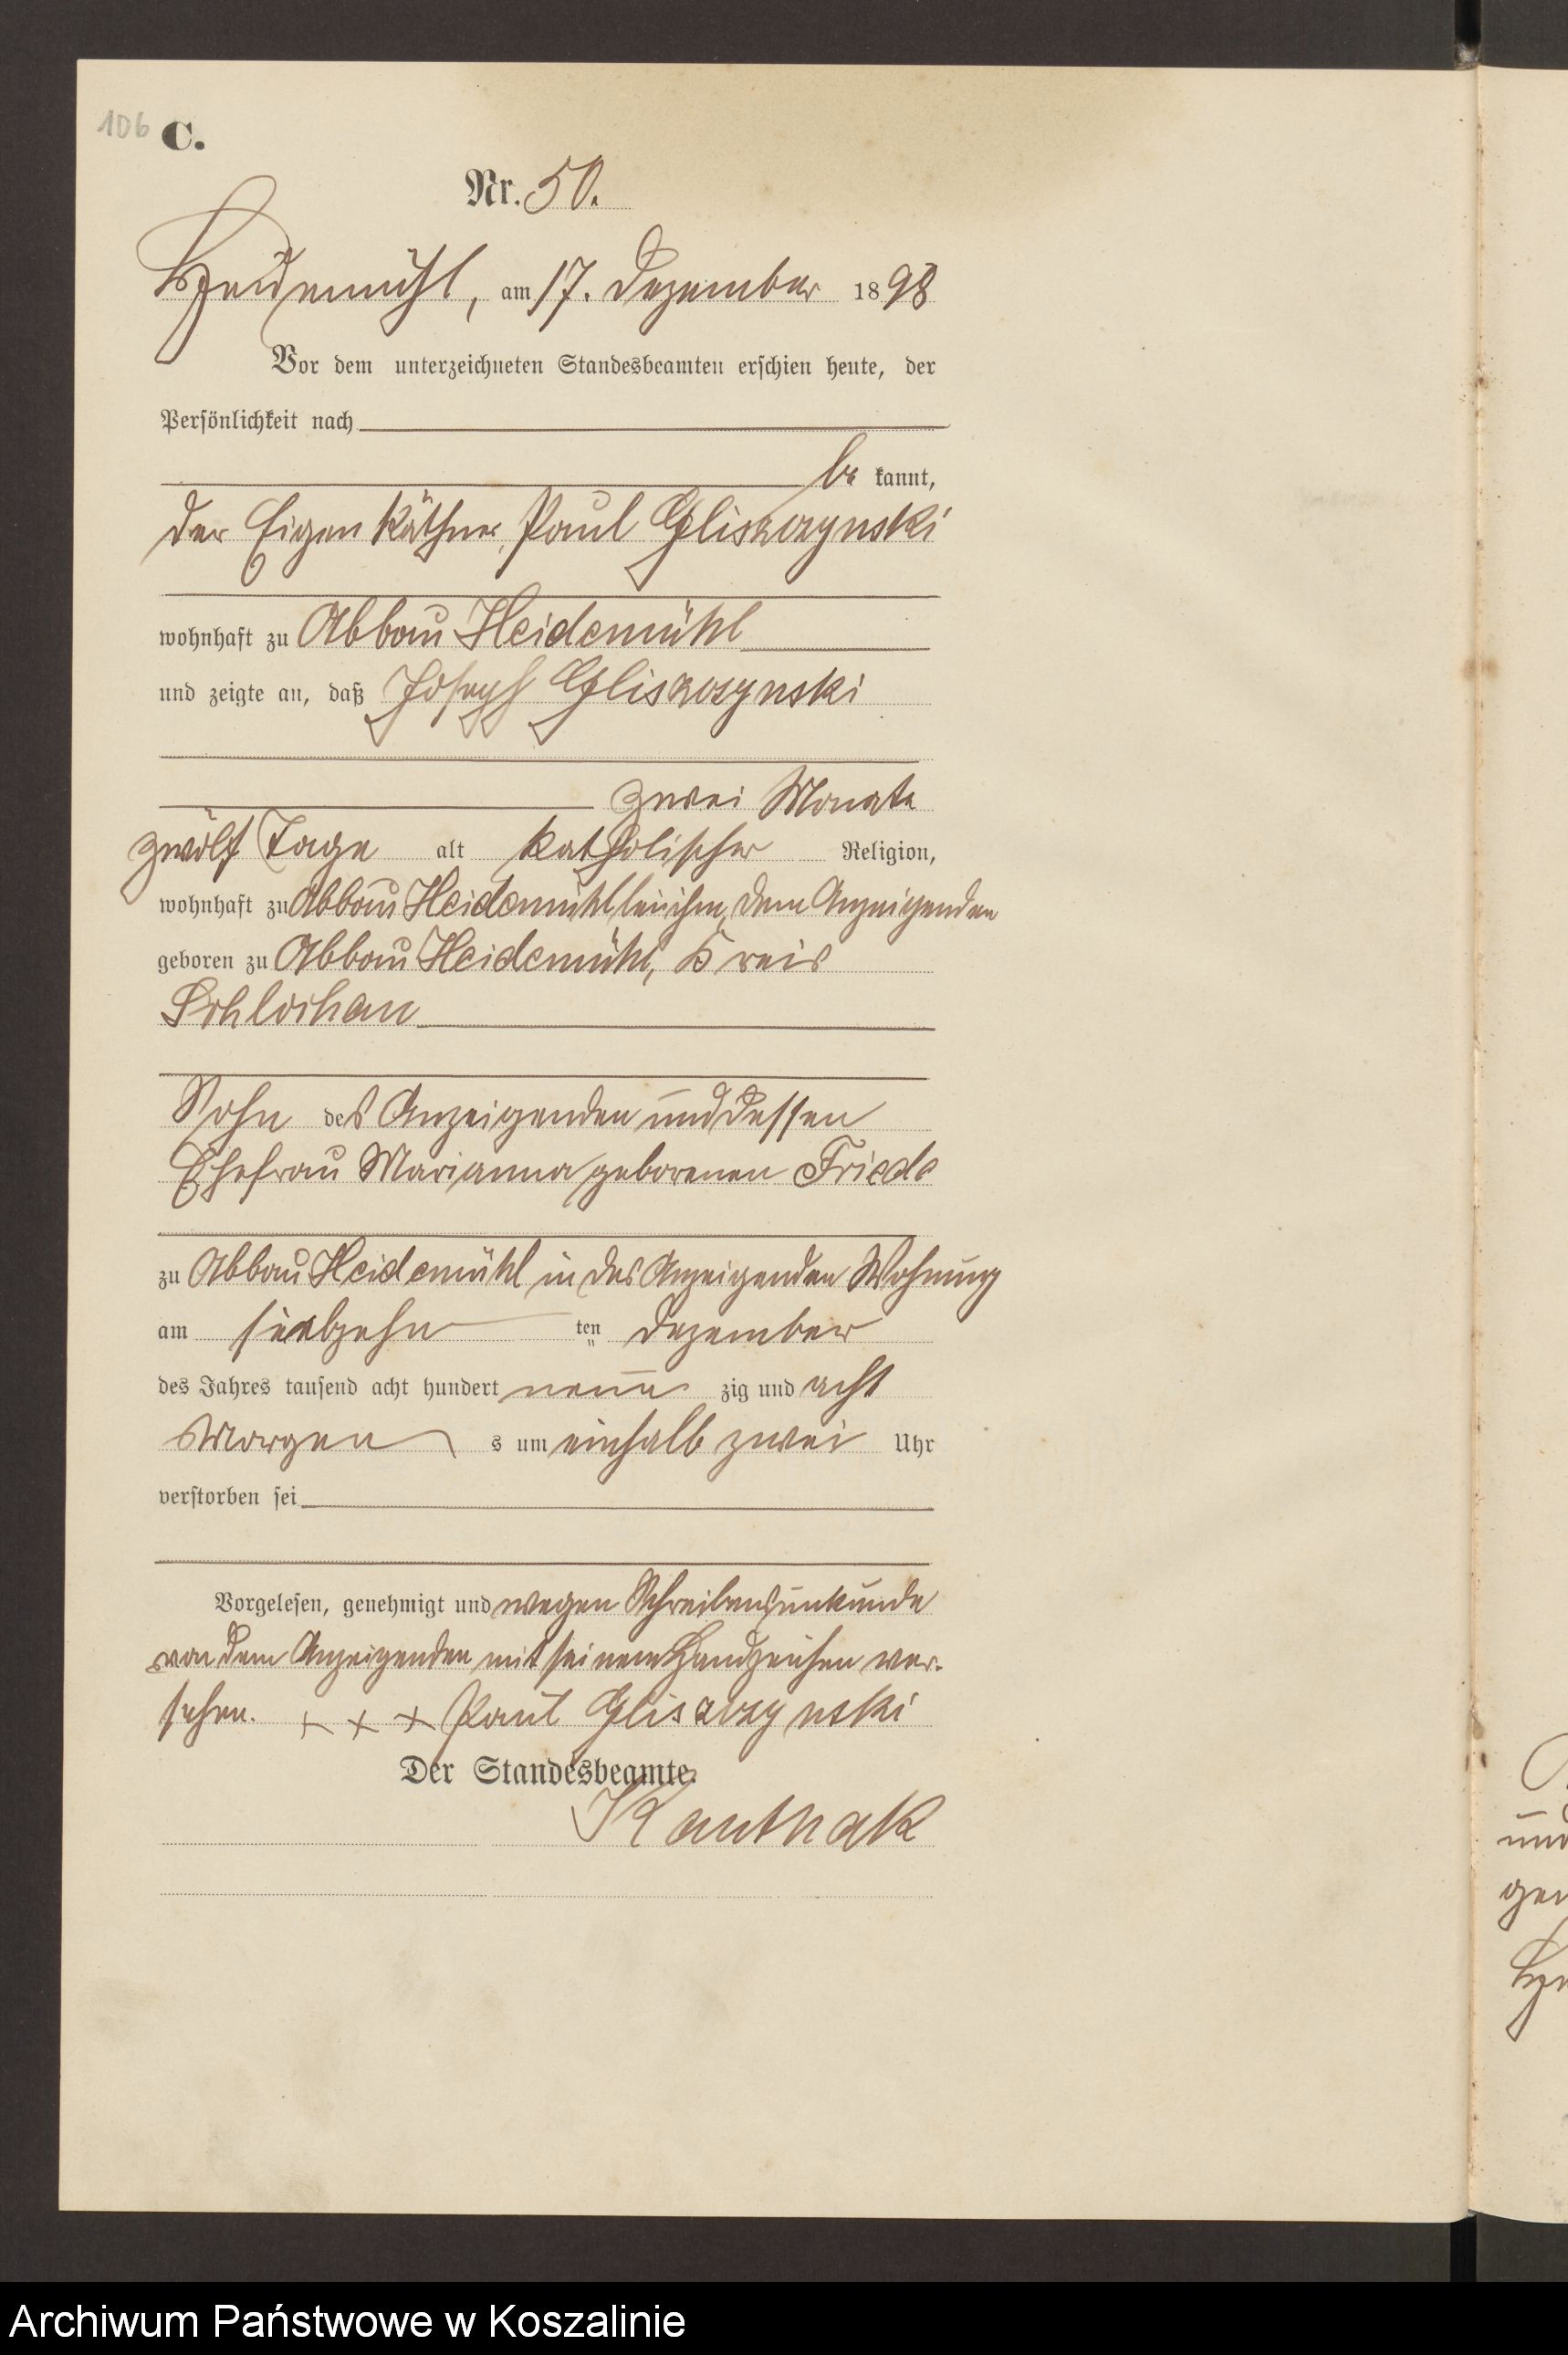 106 C.
Nr. 50.
Heidemühl, am 17. Dezember 1898
Vor dem unterzeichneten Standesbeamten erschien heute, der
Persönlichkeit nach
be kannt,
der Eigenkäthner, Paul Gliszczynski
wohnhaft zu Abbau Heidemühl
und zeigte an, daß Joseph Gliszczynski
zwei Monate
zwölf Tage alt katholischer Religion,
wohnhaft zu Abbau Heidemühl bei ihm, dem Anzeigenden
geboren zu Abbau Heidemühl, Kreis
Schlochau
Sohn des Anzeigenden und dessen
Ehefrau Marianna geborenen Friede
zu Abbau Heidemühl in des Anzeigenden Wohnung
am siebzehn ten Dezember
des Jahres tausend acht hundert neun zig und acht
Morgen s um einhalb zwei Uhr
verstorben sei
Vorgelesen, genehmigt und wegen Schreibensunkunde
von dem Anzeigenden mit seinem Handzeichen ver-
sehen. + + + Paul Gliszczynski
Der Standesbeamte.
Kanthak
und
Archiwum Państwowe w Koszalinie